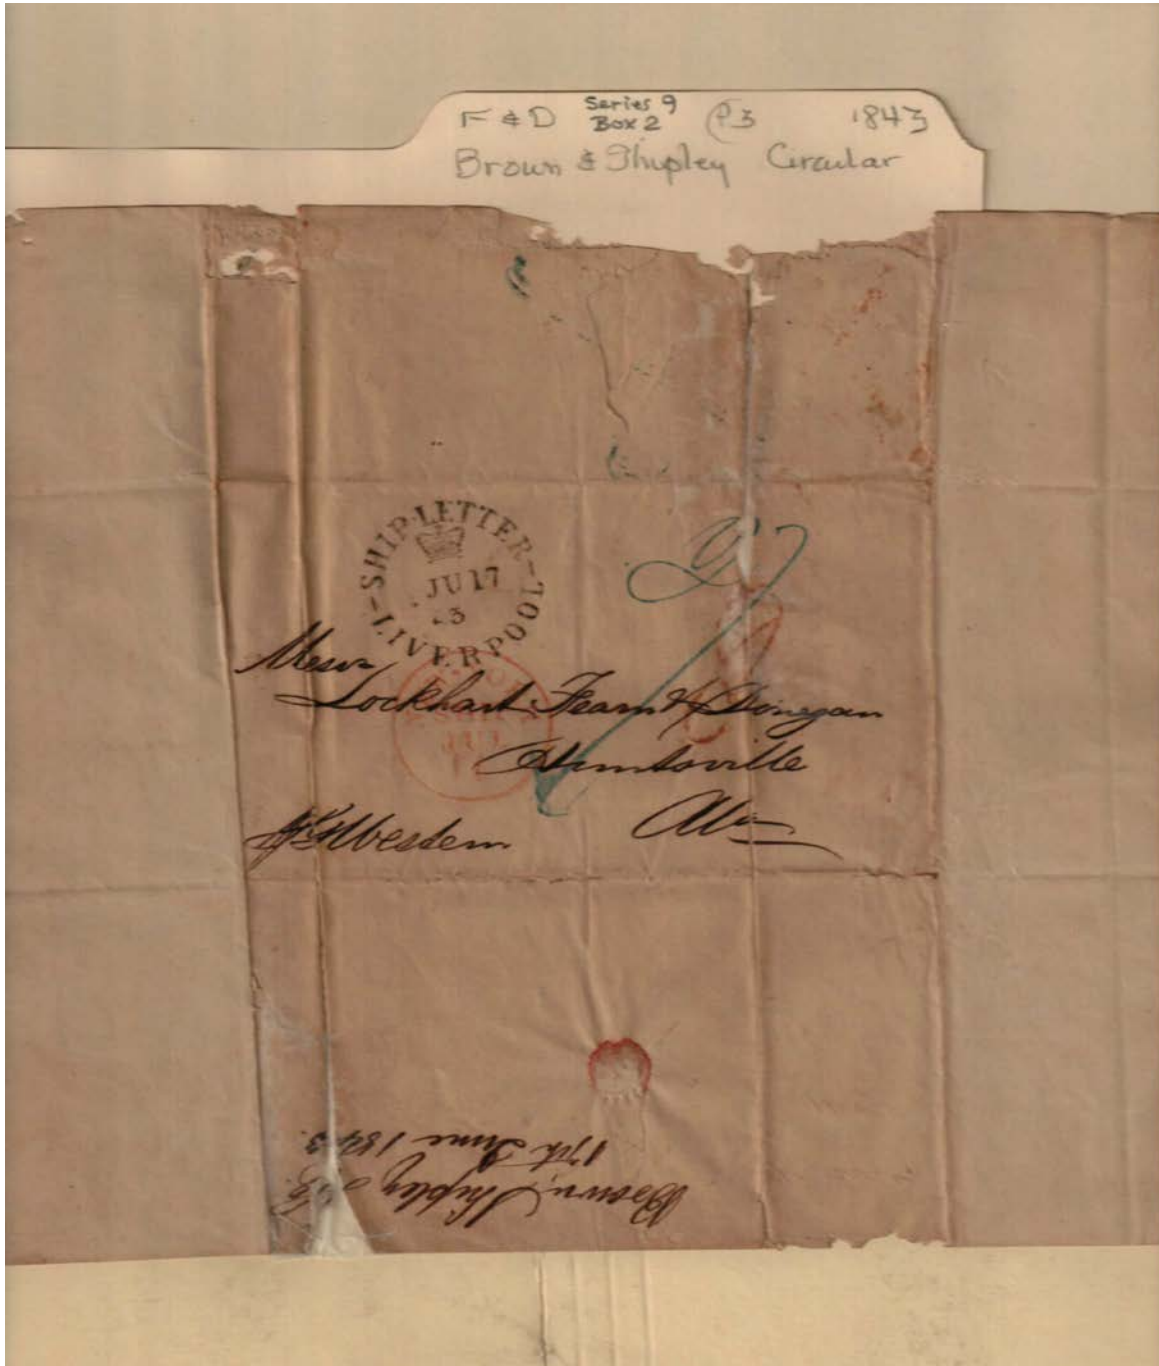 F & D Series 9 Box 2 P3 1843
Brown & Shipley Circular
SHIP LETTER
JU 17
LIVERPOOL
Messrs
Lockhart Fearn & Donegan
Huntsville
Ala
Gt Western
Brown, Shipley & Co.
17th June 1843.